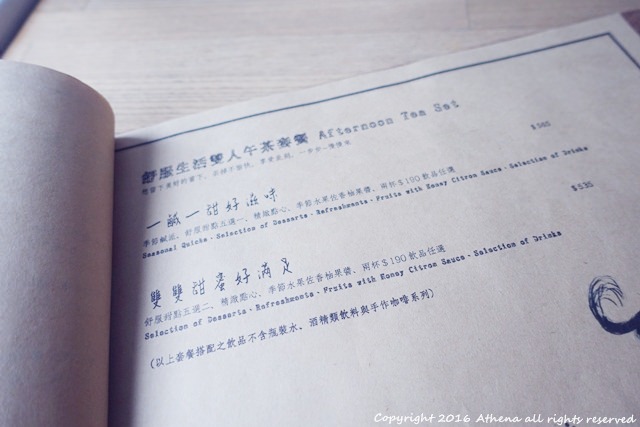 舒服生活雙人午茶套餐 Afternoon Tea Set
一鹹一甜好滋味
$565
季節鹹派、舒服甜點五選一、精緻點心、季節水果佐香柚果醬、兩杯$190飲品任選
Seasonal Quiche、Selection of Desserts、Refreshments、Fruits with Honey Citron Sauce、Selection of Drinks
雙雙甜蜜好滿足
$535
舒服甜點五選二、精緻點心、季節水果佐香柚果醬、兩杯$190飲品任選
Selection of Desserts、Refreshments、Fruits with Honey Citron Sauce、Selection of Drinks
(以上套餐搭配之飲品不含瓶裝水、酒精類飲料與手作咖啡系列)
Copyright 2016 Athena all rights reserved